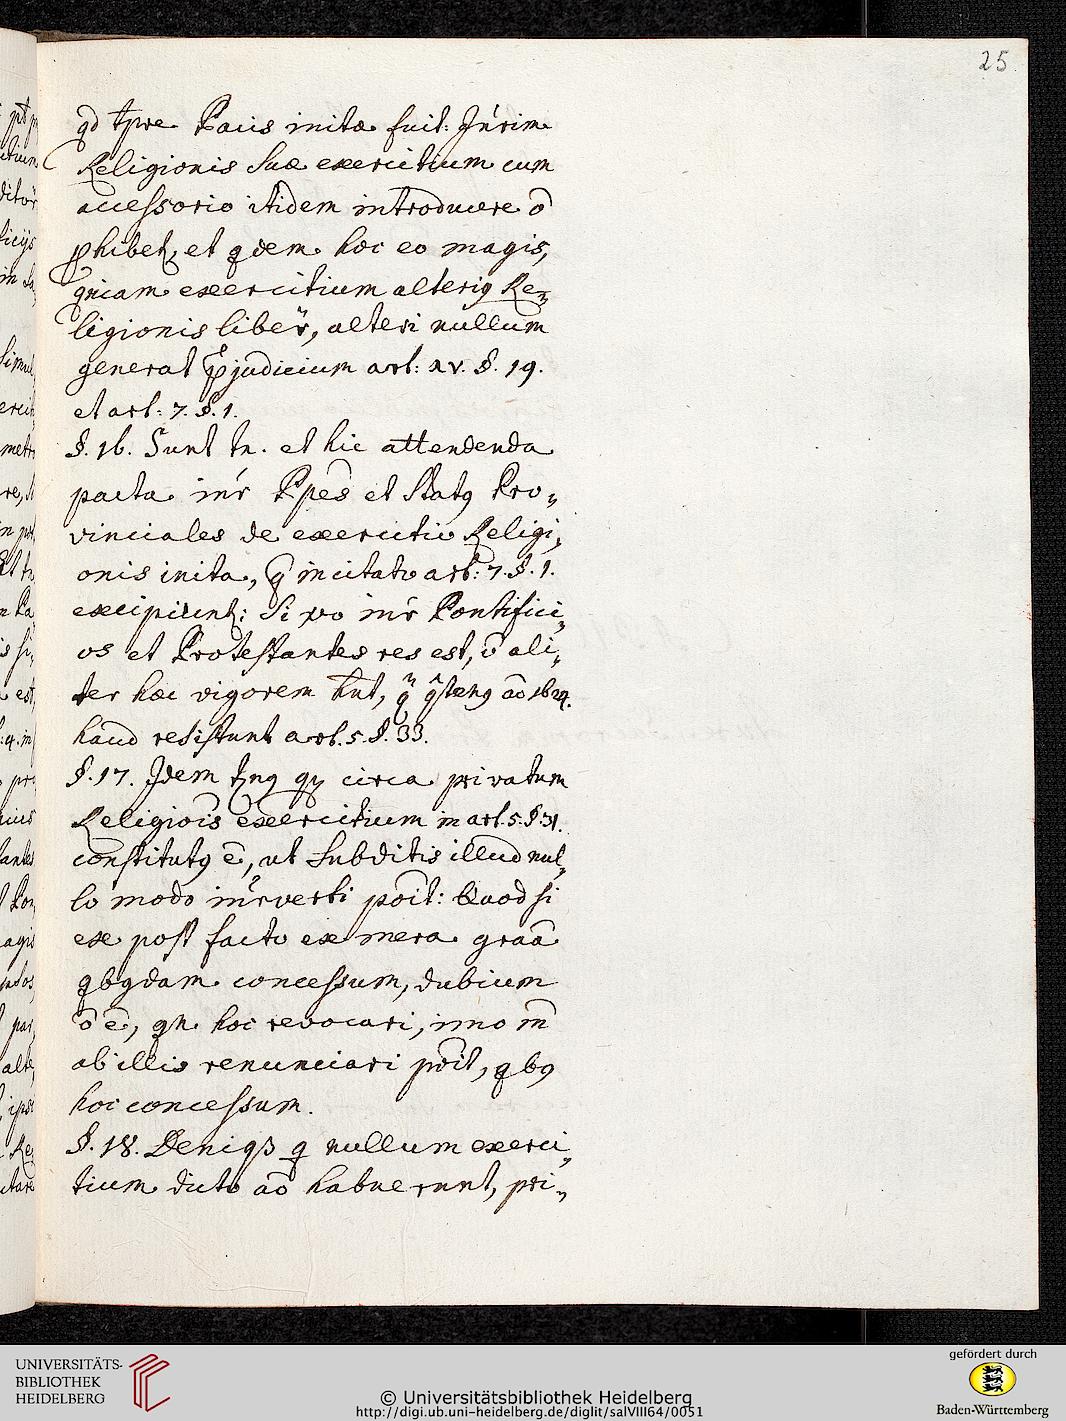 25
qd tpre Pacis initæ fuit: Interim
Religionis suæ exercitium cum
accessorio itidem introducere õ
phibet, et qdem hoc eo magis,
qniam exercitium alterig Re„
ligionis liber, alteri nullum
generat pjudicium art: xv. §. 19.
et art: 7. §. 1.
§. 16. Sunt tn. et hic attendenda
pacta intr Ppes et Statg Pro„
vinciales de exercitio Religi„
onis inita, q incitato art: 7. §. 1.
excipiunt: Si vo intr Pontifici„
os et Protestantes res est, õ ali„
ter hæc vigorem hnt, qm ao 1624.
haud resistunt art. 5. §. 33.
§. 17. Idem circa privatum
Religiois exercitium in art. 5. §. 31.
constitutg e, ut subditis illud nul„
lo modo intrverti poit: Quod si
ex post facto ex mera graa
qbgdam concessum, dubium
õ e, qn hoc revocari, imo
ab illis renunciari poit, qbg
hoc concessum.
§. 18. Deniqз q nullum exerci„
tium dicto ao habuerunt, pri„
UNIVERSITÄTS-
BIBLIOTHEK
HEIDELBERG
© Universitätsbibliothek Heidelberg
http://digi.ub.uni-heidelberg.de/diglit/salVIII64/0051
gefördert durch
Baden-Württemberg